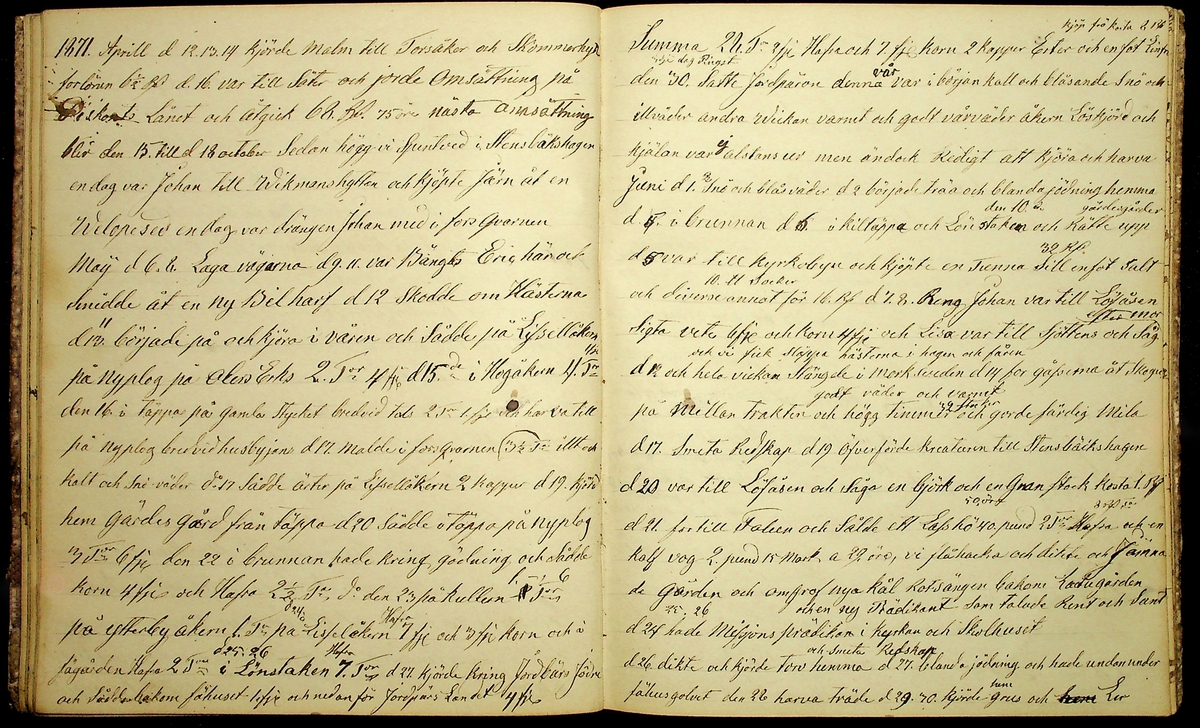 1871. Aprill d 12.13.14 kjörde Malm till Torsäker och Skommarhyt
förtörnn d. 16. var till Säter och jorde Omsättning på
Diskonts Lånet och afgick 68. 75 öre nästa amsättning
blir den 15. till d 18 october Sedan högg vi Spintved i Stensbäkshagen
en dag var Johan till Wikmanshyttan och kjöpte Järn åt en
en dag var drängen Johan med i fors Qvarnen
Maij d 6. 8. Laga vägarna d 9. 11. var Bängts Eric här och
smidde åt en ny Bilharf d 12 Skodde om Hästarna
började på och kjöra i våren och Sådde på
på nyplog på Olers Erks 2. Tor 4 fj d 15. de i Högåkern 4. Tr
den 16. i Täppa på gamla stycket bredvid 2 Tr 1. fj till
på nyplog bredvid husbyjens d 17. Malde i fors qvarnen 3½ Tr illt och
kalt och Snö väder d. 17 Sådde ärter på Lisselåkern 2 kappor d 19. kjörde
hem Gärdes Gård från täppa d 20 Sådde i Täppa på nyplog
3 Tor 6 fj den 22 i brunnan hade kring gödning och Sådde
korn 4 fj och Hafra 2½ Tr d. den 23 på kullen 1 Tor 6
d 24 Hafra
på ytterby åkern 1. Tr på Lisselåkern 7 fj och 3 fj korn och å
d 25. 26 Hafra
fågården Hafra 2 Tor i Lönstaken 7. Tor d 27. kjörde kring Jordbärs
och Sådde bakom fähuset 1 fj och nedan för Jordpärs Landet 4 fj
kjöp frö kosta
Summa 22. Tr 2 fj Hafra och 7 fj korn 2 kappor Erter och en fot Linfr
3dje dag Pingst vår
den 30. Satte Jordpäron denna var i början kall och blåsande Snö och
illväder andra Wickan varmt och godt vårväder åkern Löskjörd och
kjälan var men ändock Redigt att kjöra och harva
Juni d 1. Snö och blåsväder d 2 började träa och blanda jödning hemma
den 10. gärdesgårder
d 5. i brunnan d 6 i kiltäppa och Lönstaken och sätte upp
32 Rf
d 5 var till Kyrkobyn och kjöpte en Tunna Sill en fot Salt
10. tt Socker
och diverse annat för 16. Rf d 7. 8. Reng Johan var till Löfåsen
efter mor
Sigta vete 6 fj och korn 4 fj och Lisa var till Sjöttens och Såg
och vi fick släppa hästerna i hagen och fåren
d 12 och hela vickan Stängde i morksveden d 14 for gåsserna åt Skogen
godt väder och varmt
på Millan trakten och högg timmer och gorde färdig Mila
d 17. Smeta Redskap d 19 Ofverförde kreaturen till Stensbäckshagen
d 20 var till Löfåsen och Såga en björk och en Gran stock kosta 1. Rf
50 öre
d 21 for till Falun och Sålde ett Lass hö 40. pund 2 Tr Hafra och en
kalf vog 2. pund 15 Mark a 29 öre, vi flåhacka och dikte och Jämna
de Gården och omgrof nya kål Rotsängen bakom Ladugården
25. 26 och en ny Prädikant Som talade Rent och Sant
d 24 hade Missjons prädikan i Kyrkan och Skolhuset
och Smete Refskap
d 26. dikte och kjörde torv hemma d 27. blanda jödning och hade undan under
fähusgolvet den 28 harva träde d 29. 30. kjörde grus och Ler